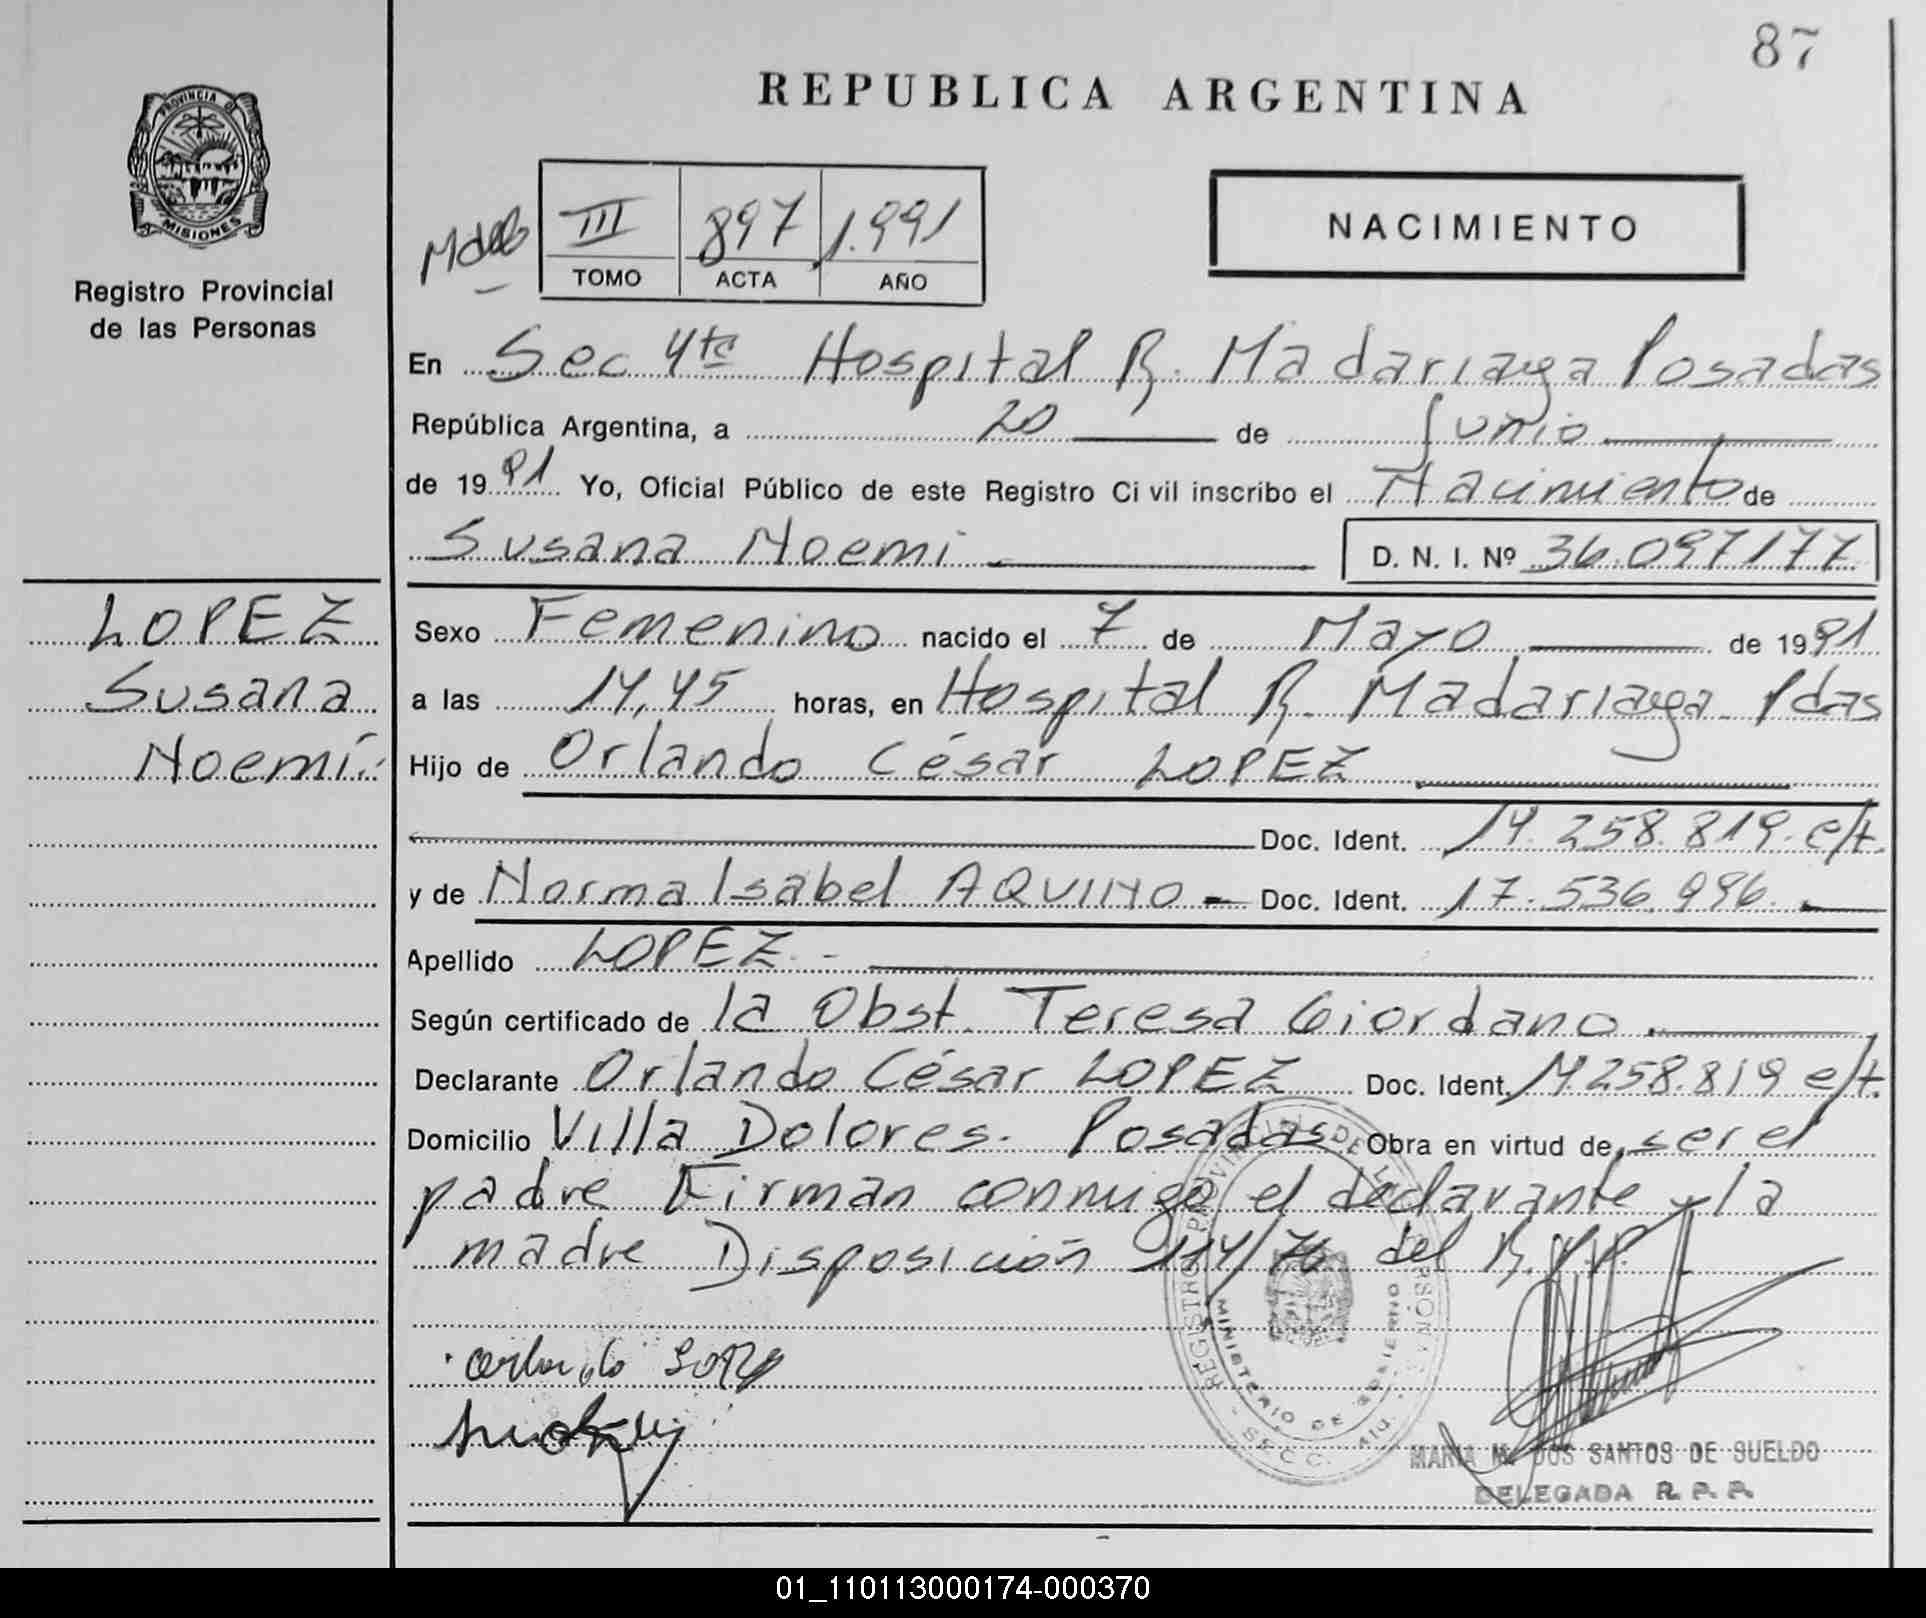 87
REPUBLICA ARGENTINA
PROVINCIA DE
MISIONES
Registro Provincial
de las Personas
III 897 1.991
TOMO ACTA AÑO
NACIMIENTO
En Sec 4ta Hospital R. Madariaga Posadas
República Argentina, a 20 de Junio
de 1991 Yo, Oficial Público de este Registro Civil inscribo el Nacimiento de
Susana Noemi D. N. I. Nº 36.097177
LOPEZ
Susana
Noemí
Sexo Femenino nacido el 7 de Mayo de 1991
a las 14,45 horas, en Hospital R. Madariaga Pdas
Hijo de Orlando César LOPEZ
Doc. Ident. 14.258.819. e/t.
y de Norma Isabel AQUINO - Doc. Ident. 17.536.996.
Apellido LOPEZ. -
Según certificado de la Obst. Teresa Giordano.
Declarante Orlando César LOPEZ Doc. Ident. 14.258.819 e/t.
Domicilio Villa Dolores. Posadas Obra en virtud de ser el
padre Firman conmigo el declarante y la
madre Disposición 114/76 del R.P.P.
REGISTRO PROVINCIAL DE LAS PERSONAS
MINISTERIO DE GOBIERNO
MARIA M. DOS SANTOS DE SUELDO
DELEGADA R. P. P.
01_110113000174-000370